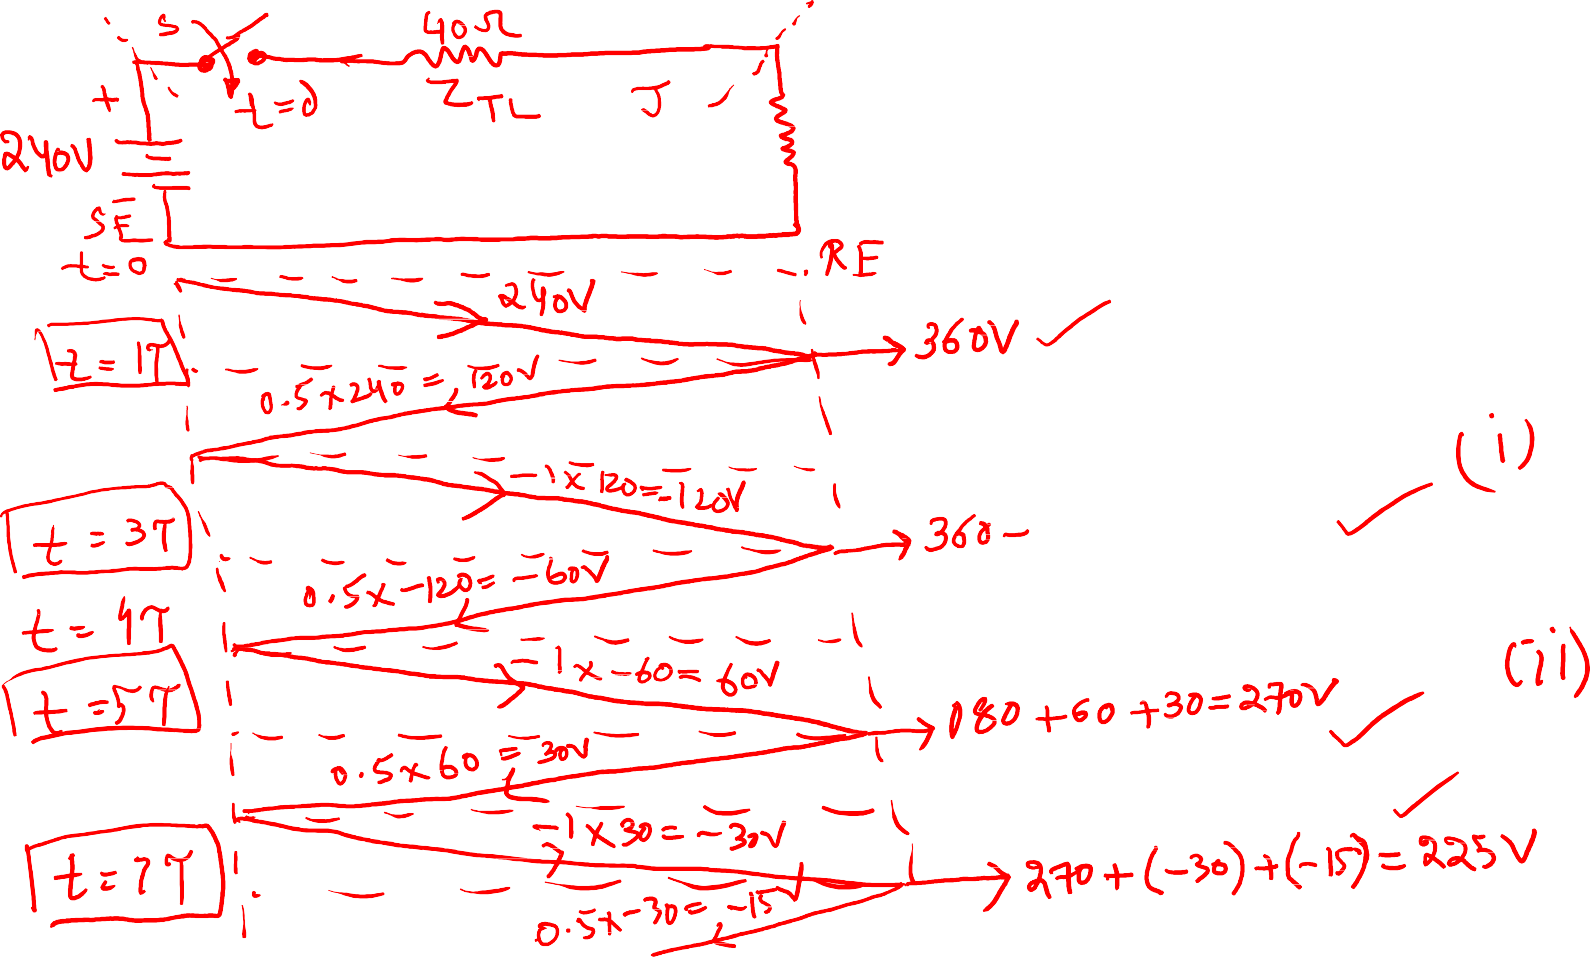 S
40Ω
+
t=0
Z_TL
J
240V
SE
RE
t=0
240V
t=1T
360V ✓
0.5×240=120V
-1×120=-120V
(i)
t=3T
360- ✓
0.5×-120=-60V
t=4T
-1×-60=60V
(ii)
t=5T
180+60+30=270V ✓
0.5×60=30V
-1×30=-30V ✓
t=7T
270+(-30)+(-15)=225V
0.5×-30=-15V